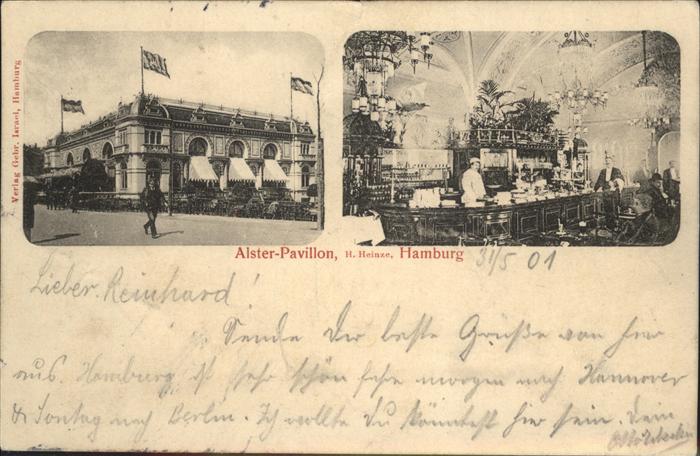 Verlag Gebr. Israel, Hamburg
Alster-Pavillon, H. Heinze, Hamburg 31/5 01
Lieber Reinhard!
Sende Dir beste Grüße von hier
aus. Hamburg ist sehr schön fahre morgen nach Hannover
& Sontag nach Berlin. Ich wollte Du könntest hier sein. Dein